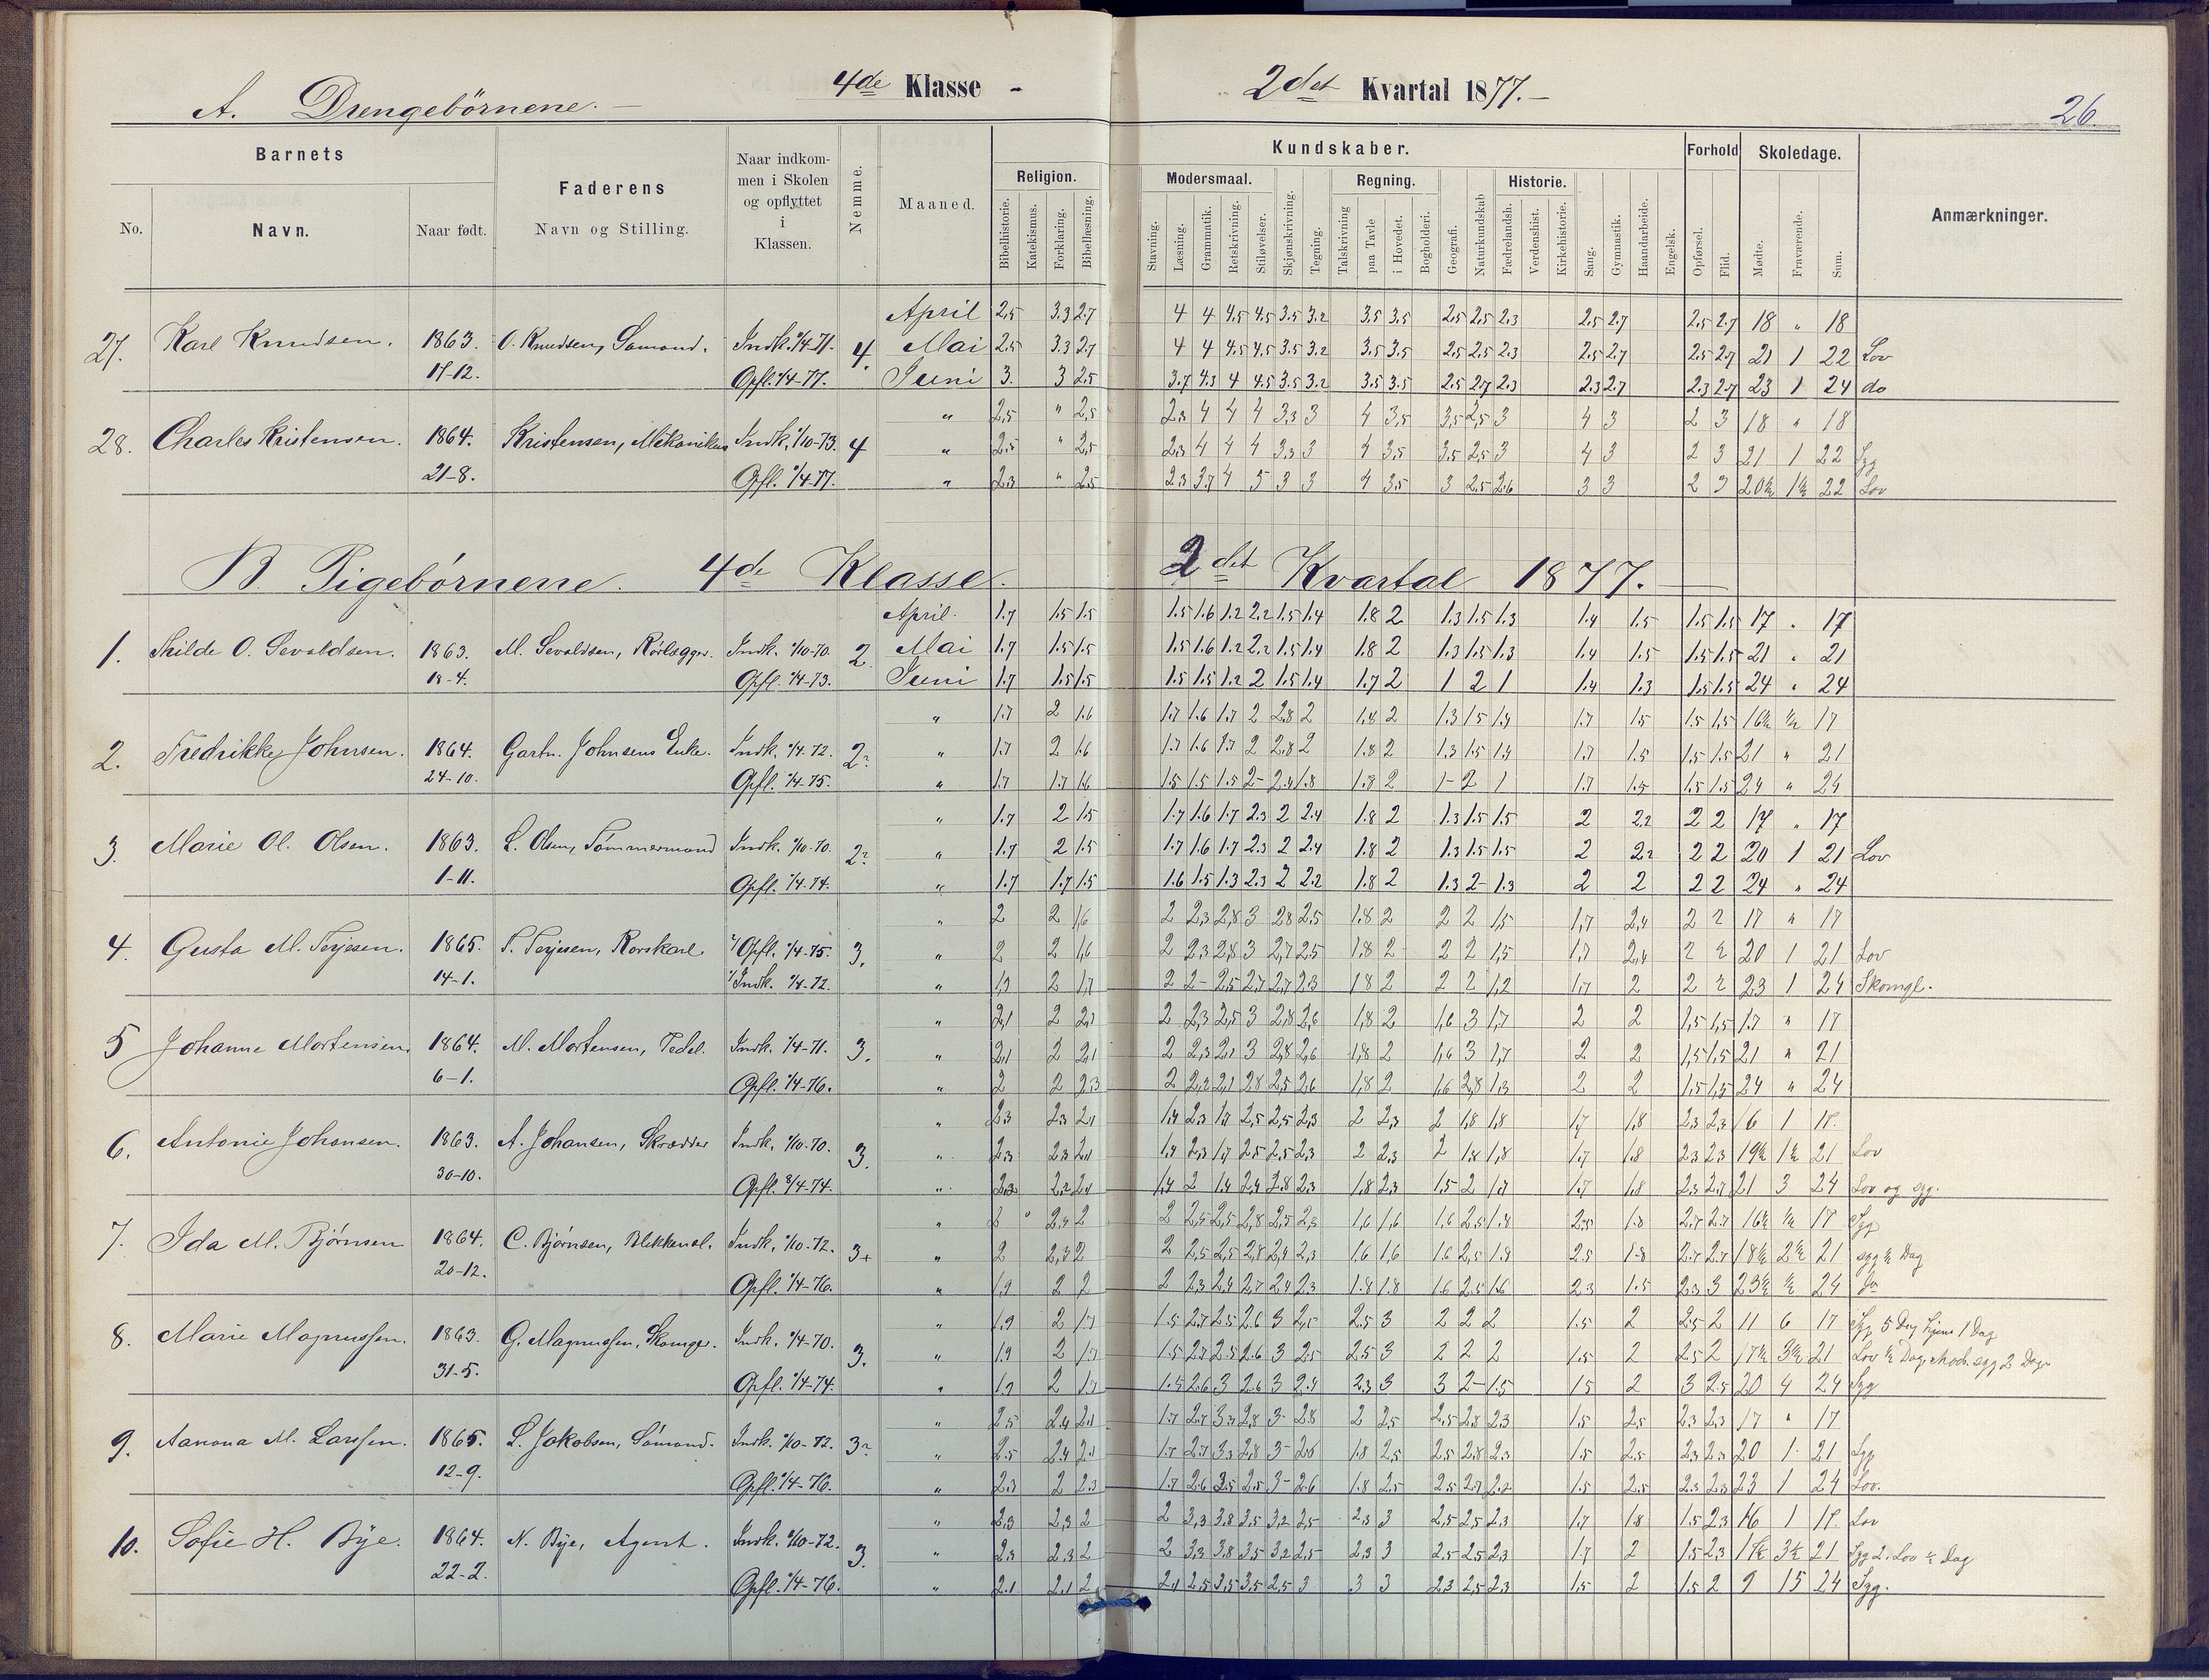 4de Klasse - 2det Kvartal 1877.-
A. Drengebörnene. -
26.
Barnets
Faderens
Naar indkommen i Skolen og opflyttet i Klassen.
Nemme.
Maaned.
Religion.
Kundskaber.
Modersmaal.
Regning.
Historie.
Forhold
Skoledage.
Anmærkninger.
No. Navn. Naar født. Navn og Stilling.
Bibelhistorie. Katekismus. Forklaring. Bibellæsning. Stavning. Læsning. Grammatik. Retskrivning. Stiløvelser. Skjønskrivning. Tegning. Talskrivning paa Tavle i Hovedet. Bogholderi. Geografi. Naturkundskab Fædrelandsh. Verdenshist. Kirkehistorie. Sang. Gymnastik. Haandarbeide. Engelsk. Opførsel. Flid. Mødte. Fraværende. Sum.
April 2,5 3.3 2.7 4 4 4.5 4.5 3.5 3.2 3.5 3.5 2.5 2.5 2.3 2.5 2.7 2.5 2.7 18 " 18
27. Karl Knudsen. 1863. O. Knudsen, Sømand. Indk. 1/4-71. 4. Mai 2.5 3.3 2.7 4 4 4.5 4.5 3.5 3.2 3.5 3.5 2.5 2.5 2.3 2.5 2.7 2.5 2.7 21 1 22 Lov
17-12. Opfl. 1/4-77. Juni 3. 3 2.5 3.7 4.3 4 4.5 3.5 3.2 3.5 3.5 2.5 2.7 2.3 2.3 2.7 2.3 2.7 23 1 24 do
" 2,5 " 2,5 2.3 4 4 4 3,3 3 4 3,5 3,5 2,5 3 4 3 2 3 18 " 18
28. Charles Kristensen. 1864. Kristensen, Mekanikus Indk. 1/10-73. 4 " 2.5 " 2,5 2.3 4 4 4 3.3 3 4 3.5 3.5 2.5 3 4 3 2 3 21 1 22 Syg
21-8. Opfl. 1/4-77. " 2.3 " 2.5 2.3 3.7 4 5 3 3 4 3.5 3 2.5 2.6 3 3 2 3 20½ 1½ 22 Lov
B. Pigebörnene. 4de Klasse. 2det Kvartal 1877. -
April. 1.7 1.5 1.5 1.5 1.6 1.2 2.2 1.5 1.4 1.8 2 1.3 1.5 1.3 1.4 1.5 1.5 1.5 17 " 17
1. O. Sevaldsen. 1863. M. Sevaldsen, Rørlægger. Indk. 1/10-70. 2. Mai 1.7 1.5 1.5 1.5 1.6 1.2 2.2 1.5 1.4 1.8 2 1.3 1.5 1.3 1.4 1.5 1.5 1.5 21 " 21
18-4. Opfl. 1/4-73. Juni 1.7 1.5 1.5 1.5 1.5 1.2 2 1.5 1.4 1.7 2 1 2 1 1.4 1.3 1.5 1.5 24 " 24
" 1.7 2 1.6 1.7 1.6 1.7 2 2.8 2 1.8 2 1.3 1.5 1.4 1.7 1.5 1.5 1.5 16½ ½ 17
2. Fredrikke Johnsen. 1864. Gartn. Johnsens Enke. Indk. 1/4-72. " 1.7 2 1.6 1.7 1.6 1.7 2 2.8 2 1.8 2 1.3 1.5 1.4 1.7 1.5 1.5 1.5 21 " 21
24-10. Opfl. 1/4-75. " 1.7 1.7 1.6 1.5 1.5 1.5 2- 2.4 1.8 1.8 2 1- 2 1 1.7 1.5 1.5 1.5 24 " 24
" 1.7 2 1.5 1.7 1.6 1.7 2.3 2 2.4 1.8 2 1.3 1.5 1.5 2 2.2 2 2 17 " 17
3. Marie Ol. Olsen. 1863. L. Olsen, Tømmermand Indk. 1/10-70. " 1.7 2 1.5 1.7 1.6 1.7 2.3 2 2.4 1.8 2 1.3 1.5 1.5 2 2.2 2 2 20 1 21 Lov
1-11. Opfl. 1/4-74. " 1.7 1.7 1.5 1.6 1.5 1.3 2.3 2 2.2 1.8 2 1.3 2- 1.3 2 2 2 2 24 " 24
" 2 2 1,6 2 2,3 2,8 3 2.8 2.5 1.8 2 2 2 1,5 1,7 2,4 2 2 17 " 17
4. Gusta M. Terjesen. 1865. T. Terjesen, Korskarl. Opfl. 1/4-75. 3. " 2 2 1,6 2 2.3 2,8 3 2,7 2.5 1.8 2 2 2 1,5 1.7 2,4 2 2 20 1 21 Lov
14-1. Indk. 1/4-72. " 1,9 2 1,7 2 2- 2,5 2,7 2,7 2.3 1.8 2 2 2 1,2 1,7 2 2 2 23 1 24 Skomgl.
" 2,1 2 2,1 2 2,3 2,5 3 2,8 2,6 1,8 2 1,6 3 1,7 2 2 1,5 1,5 17 " 17
5 Johanne Mortensen. 1864. M. Mortensen, Pedel. Indk. 1/4-71. 3. " 2,1 2 2,1 2 2,3 2,1 3 2,8 2,6 1,8 2 1,6 3 1,7 2 2 1,5 1,5 21 " 21
6-1. Opfl. 1/4-76. " 2 2 2.3 2 2,2 2,1 2.8 2,5 2.6 1,8 2 1.6 2,8 1,3 2 2 1.5 1,5 24 " 24
" 2.3 2.3 2.1 1.4 2.3 1.7 2,5 2,5 2,3 2 2,3 2 1,8 1,8 1.7 1.8 2.3 2,3 16 1 17.
6. Antonie Johansen. 1863. A. Johansen, Skrædder Indk. 1/10-70. 3. " 2.3 2.3 2.1 1.4 2.3 1.7 2.5 2.5 2.3 2 2.3 2 1.8 1.8 1.7 1.8 2.3 2.3 19½ 1½ 21 Lov
30-10. Opfl. 3/4-74. " 2.3 2.2 2.1 1.4 2 1.4 2.4 2.8 2.3 1.8 2.3 1.5 2 1.7 1.7 1.8 2.3 2.7 21 3 24 Lov og syg.
" 2 " 2.3 2 2 2.5 2.5 2,8 2,5 2,3 1,6 1,6 1.6 2.5 1.8 2.5 1.8 2.7 2.7 16½ ½ 17 Syg
7. Ida M. Bjørnsen 1864. C. Bjørnsen, Blikkensl. Indk. 1/10-72. 3+ " 2 2,3 2 2 2,5 2.5 2.8 2,4 2,3 1.6 1,6 1.6 2,5 1.8 2.5 1.8 2.7 2.7 18½ 2½ 21 syg ½ Dag
20-12. Opfl. 1/4-76. " 1.9 2 2 2 2.3 2.4 2.7 2.4 2.3 1.8 1.8 1.6 2.5 1.6 2.3 1.5 2.3 3 23½ ½ 24
" 1.9 2 1.7 1.5 2.7 2.5 2.6 3 2,5 2.5 3 2 2 2 1.5 2 2.5 2 11 6 17 Syg 5 Dag hjem 1 Dag
8. Marie Magnussen. 1863. G. Magnussen, Skomger. Indk. 1/4-70. 3. " 1.9 2 1.7 1.5 2.7 2.5 2.6 3 2.5 2.5 3 2 2 2 1.5 2 2.5 2 17½ 3½ 21 Lov ½ Dag syg 2 Dage
31-5. Opfl. 1/4-74. " 1.9 2 1.7 1.5 2.6 3 2.6 3 2.4 2.3 3 3 2- 1.5 1.5 2 3 2.5 20 4 24 Syg
" 2.5 2.4 2.1 1.7 2.7 3.3 2.8 3- 2.8 2 2.5 2,5 2.8 2.3 1.5 2.5 2.3 2.3 17 " 17
9. M. Larssen. 1865. L. Jakobsen, Sømand. Indk. 1/10-72. " 2.5 2.4 2.1 1.7 2.7 3.3 2.8 3- 2.6 1.8 2.5 2.5 2.8 2.3 1.5 2.5 2.3 2.3 20 1 21 Syg
12-9. Opfl. 1/4-76. " 2.3 2 2.3 1.7 2.6 3.5 2.5 3- 2.6 1.8 2.5 2.5 2.7 2.2 1.5 2.5 2.3 2.3 23 1 24 Lov.
" 2.3 2,3 2 2 3,3 3.8 3.5 3,2 2,5 2.3 3 2.5 2.5 2.3 1.7 1.8 1.5 2.3 16 1 17. Lov
10. Sofie H. Bye. 1864. N. Bye, Agent. Indk. 1/10-72. 3. " 2.3 2.3 2 2 3.3 3.8 3.5 3.2 2.5 2.3 3 2.5 2.5 2.3 1.7 2 1.5 2.3 17½ 3½ 21 Syg 2. Lov ½ Dag
22-2. Opfl. 1/4-76. " 2.1 2.1 2 2.1 2.5 3.5 3.5 2.5 3 3 3 2.3 2,5 2.3 1.5 2 1.5 2 9 15 24 Syg.